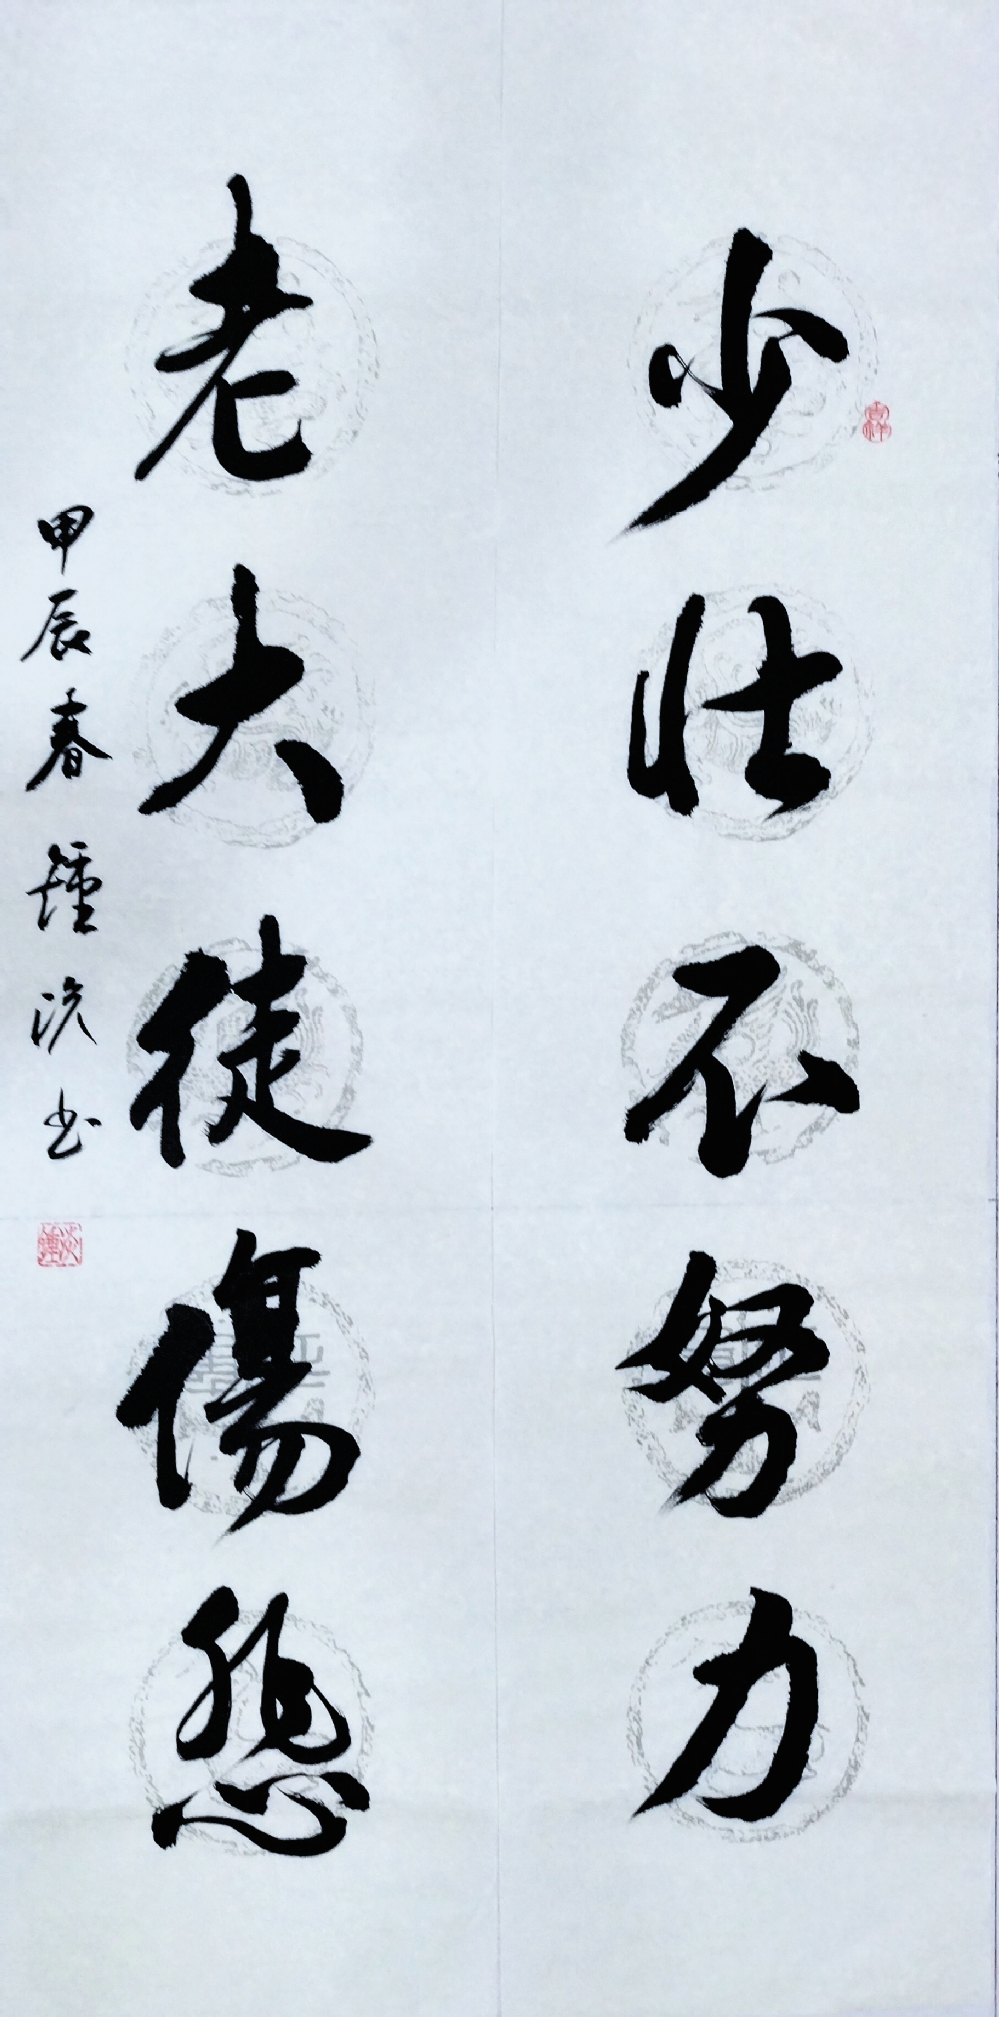 吉祥
少壮不努力
老大徒傷悲
甲辰春鍾书